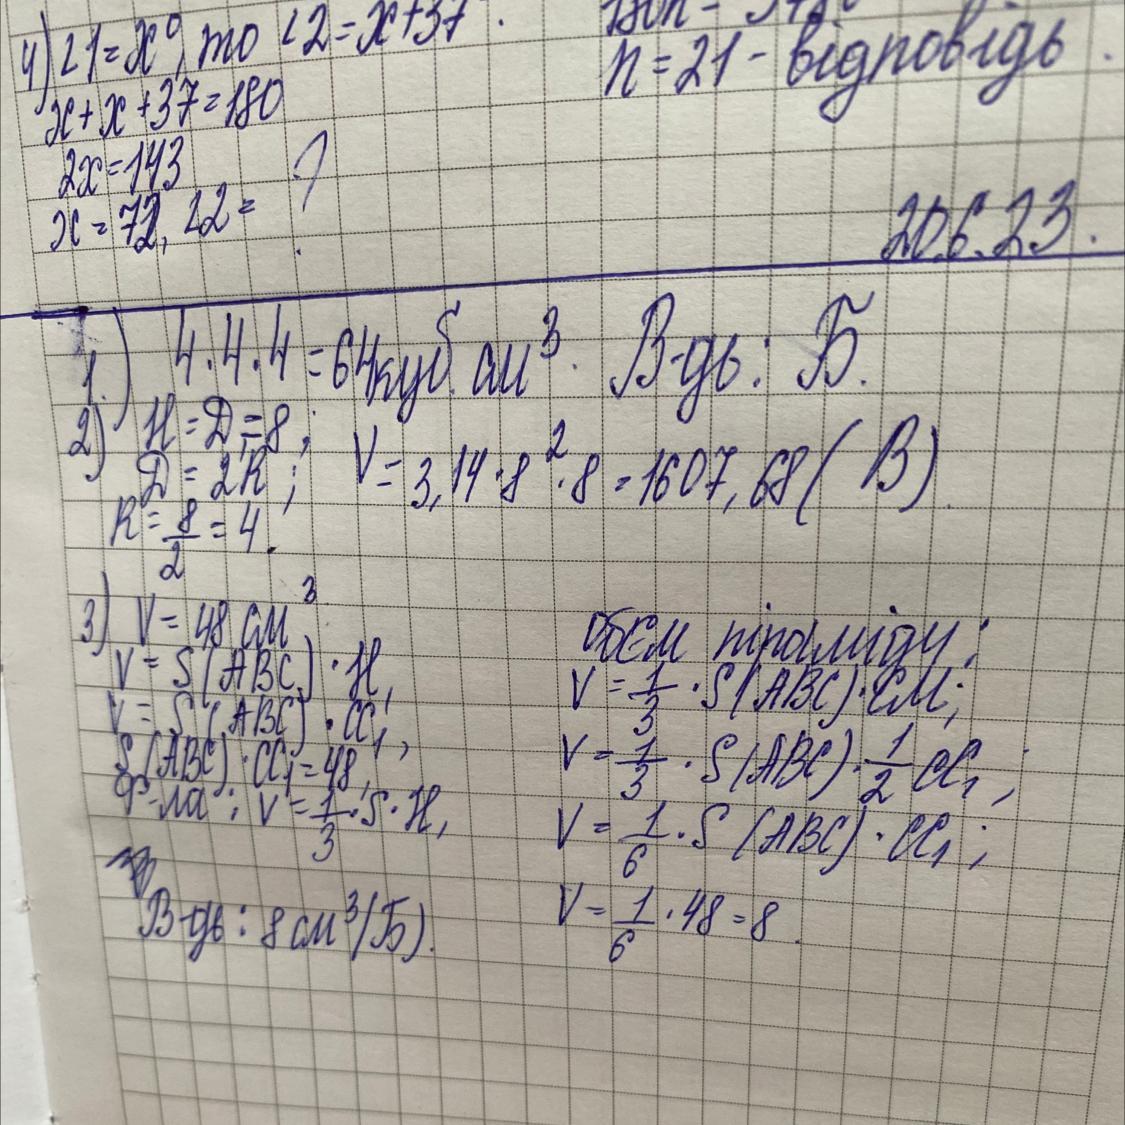 4) ∠1=x°, то ∠2=x+37.
x+x+37=180
2x=143
x=72, ∠2= ?
n=21 - відповідь.
20.6.23.
1.) 4·4·4=64куб. см³. В-дь: Б.
2) H=D=8;
D=2R;
R=8/2=4.
V=3,14·8²·8=1607,68(В).
3) V=48 см³
V=S(ABC)·H,
V=S(ABC)·CC₁,
S(ABC)·CC₁=48,
Ф-ла: V=1/3·S·H,
В-дь: 8 см³(Б).
Обєм піраміди:
V=1/3·S(ABC)·CM;
V=1/3·S(ABC)·1/2CC₁;
V=1/6·S(ABC)·CC₁;
V=1/6·48=8.